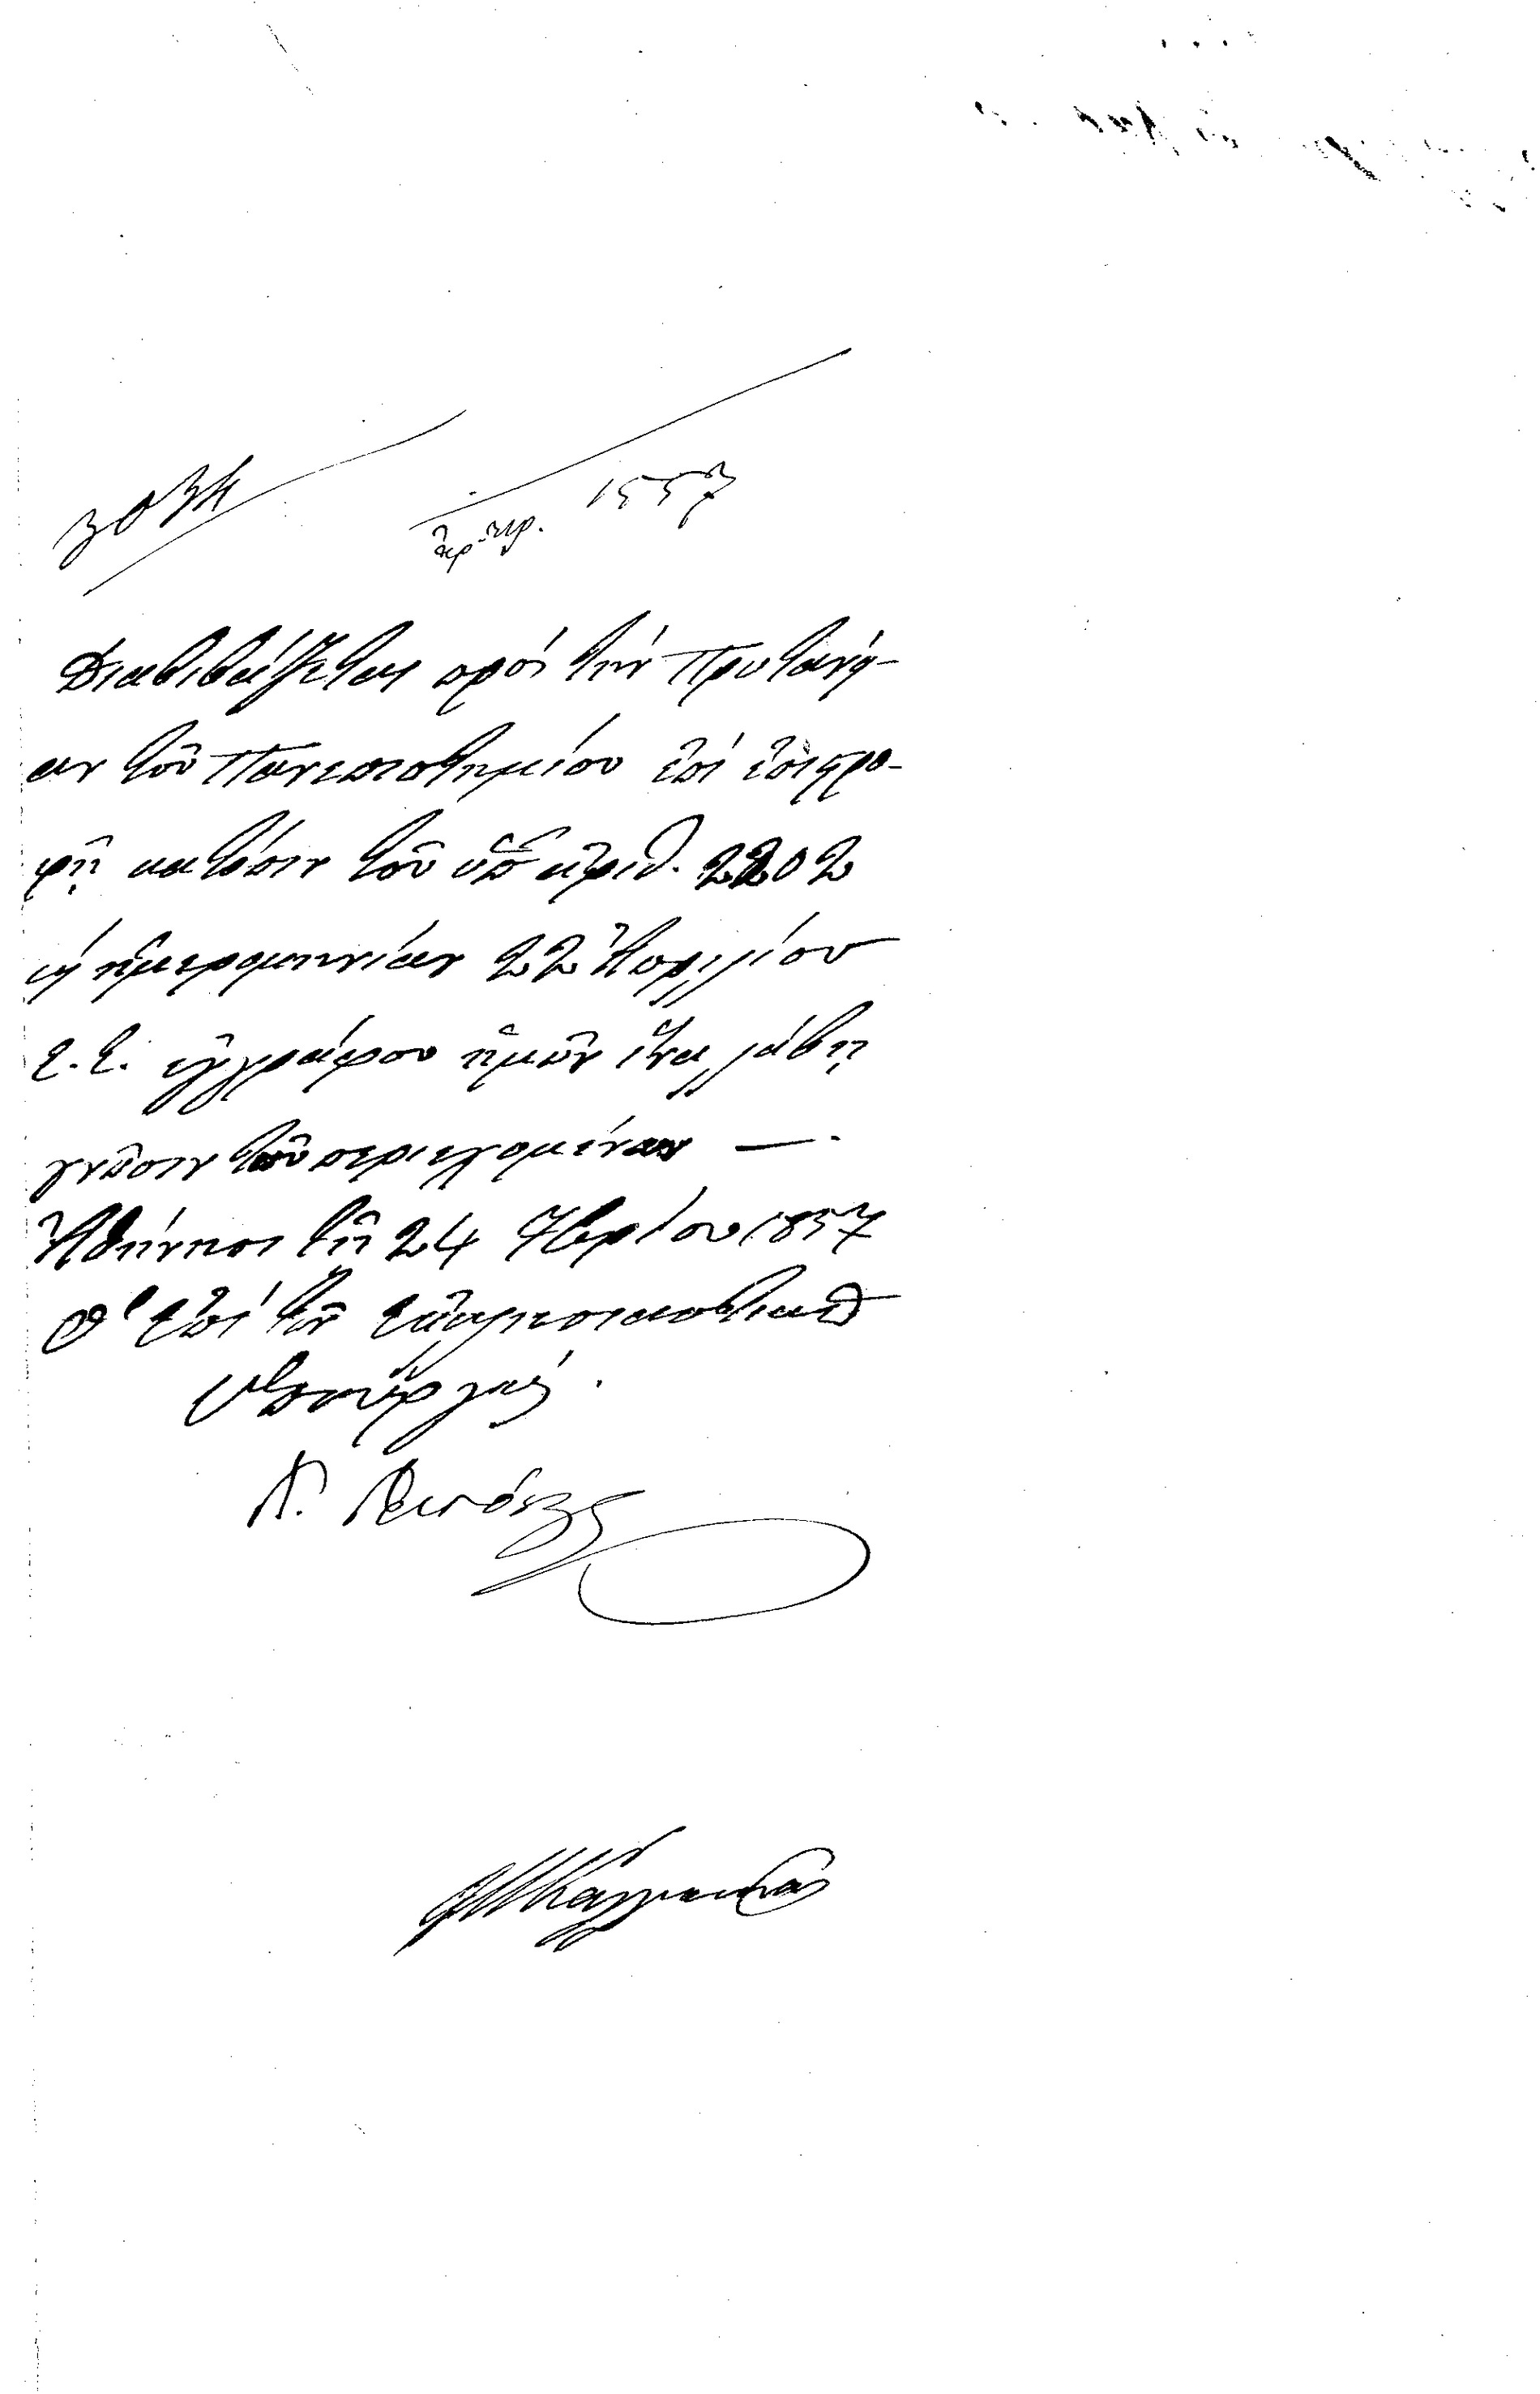 ἀρ. πρ. 1557
Διαβιβάζεται πρὸς τὴν Πρυτανεί-
αν τοῦ Πανεπιστημίου ἐπὶ ἐπιστρο-
φῇ κατόπιν τοῦ ὑπ' ἀριθ. 2202
ἡμερομηνίαν 22 Ἀπριλίου
ἐ.ἔ. ἐγγράφου ἡμῶν ἵνα λάβῃ
γνῶσιν τοῦ περιεχομένου —.
Ἀθήνησι τῇ 24 7βρίου 1857
Ὁ ἐπὶ τῶν ἐκκλησιαστικῶν
Ὑπουργός.